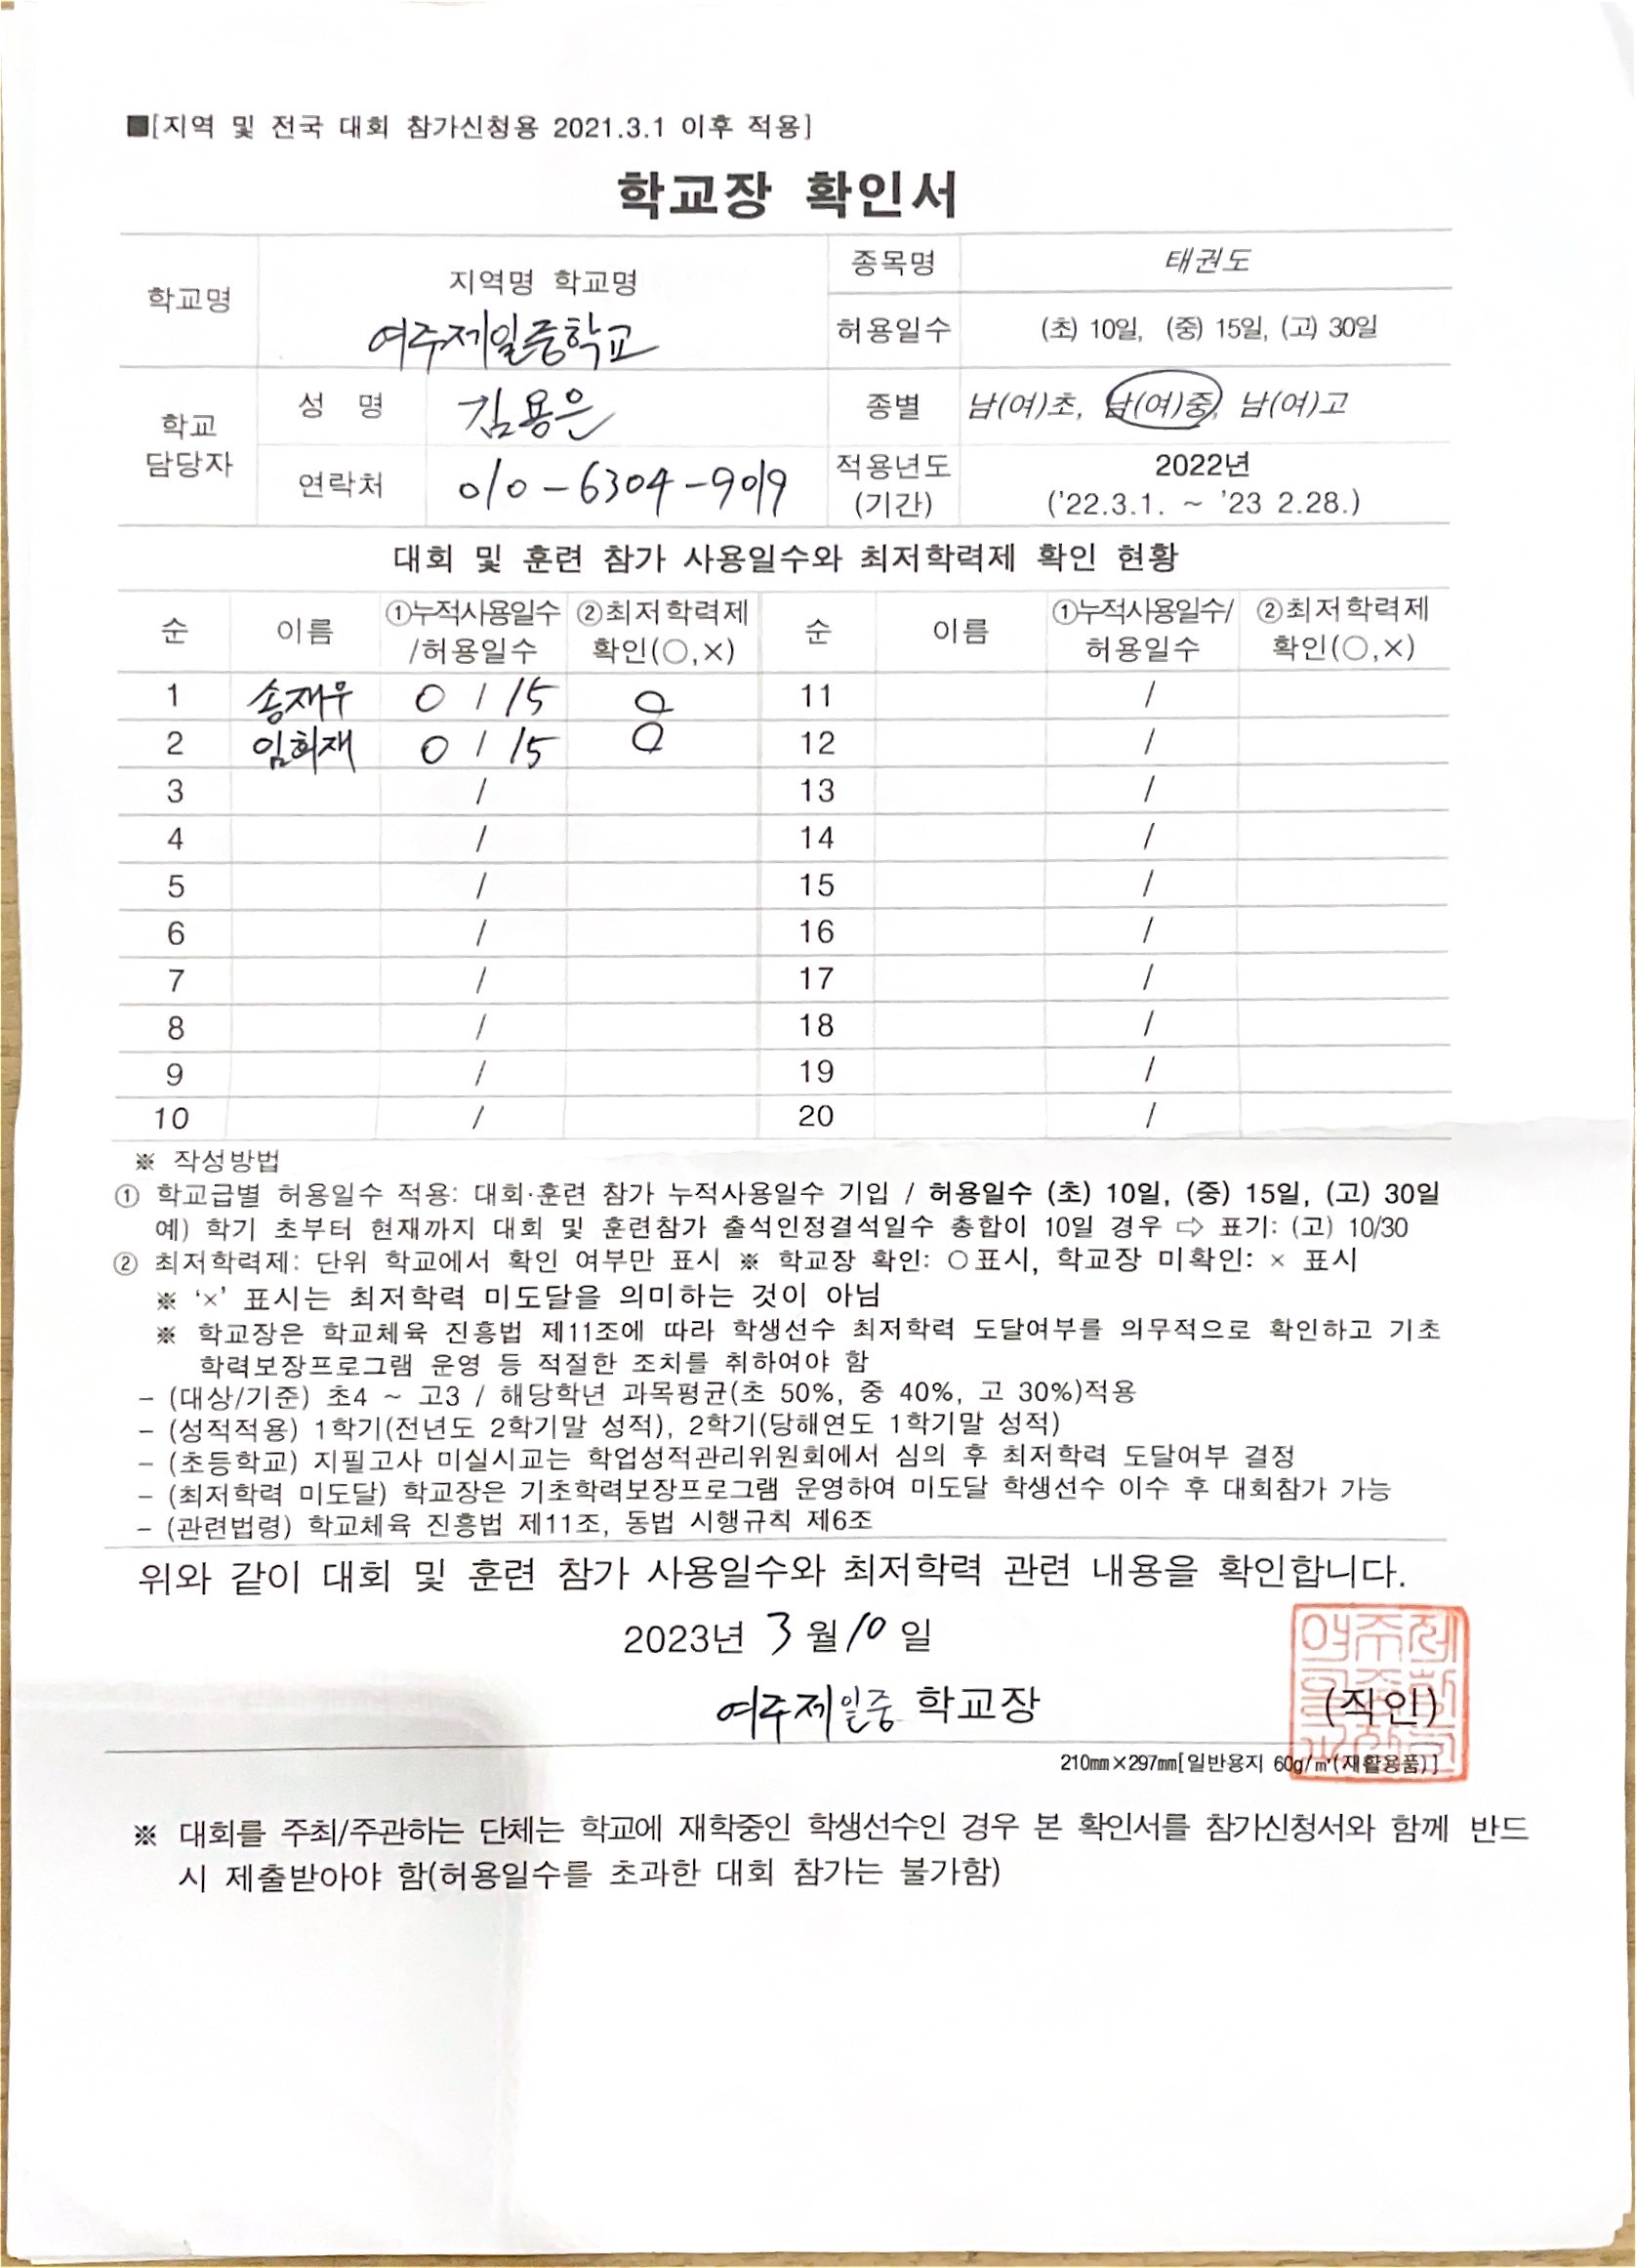 ■[지역 및 전국 대회 참가신청용 2021.3.1 이후 적용]
학교장 확인서
학교명
지역명 학교명
여주제일중학교
종목명
태권도
허용일수
(초) 10일, (중) 15일, (고) 30일
학교
담당자
성 명
김용은
종별
남(여)초, 남(여)중, 남(여)고
연락처
010-6304-9019
적용년도
(기간)
2022년
('22.3.1. ~ '23 2.28.)
대회 및 훈련 참가 사용일수와 최저학력제 확인 현황
순 이름 ①누적사용일수/허용일수 ②최저학력제 확인(○,×) 순 이름 ①누적사용일수/허용일수 ②최저학력제 확인(○,×)
1 송재우 0 / 15 ○ 11 /
2 임희재 0 / 15 ○ 12 /
3 / 13 /
4 / 14 /
5 / 15 /
6 / 16 /
7 / 17 /
8 / 18 /
9 / 19 /
10 / 20 /
※ 작성방법
① 학교급별 허용일수 적용: 대회·훈련 참가 누적사용일수 기입 / 허용일수 (초) 10일, (중) 15일, (고) 30일
예) 학기 초부터 현재까지 대회 및 훈련참가 출석인정결석일수 총합이 10일 경우 ⇨ 표기: (고) 10/30
② 최저학력제: 단위 학교에서 확인 여부만 표시 ※ 학교장 확인: ○표시, 학교장 미확인: × 표시
※ '×' 표시는 최저학력 미도달을 의미하는 것이 아님
※ 학교장은 학교체육 진흥법 제11조에 따라 학생선수 최저학력 도달여부를 의무적으로 확인하고 기초
학력보장프로그램 운영 등 적절한 조치를 취하여야 함
- (대상/기준) 초4 ~ 고3 / 해당학년 과목평균(초 50%, 중 40%, 고 30%)적용
- (성적적용) 1학기(전년도 2학기말 성적), 2학기(당해연도 1학기말 성적)
- (초등학교) 지필고사 미실시교는 학업성적관리위원회에서 심의 후 최저학력 도달여부 결정
- (최저학력 미도달) 학교장은 기초학력보장프로그램 운영하여 미도달 학생선수 이수 후 대회참가 가능
- (관련법령) 학교체육 진흥법 제11조, 동법 시행규칙 제6조
위와 같이 대회 및 훈련 참가 사용일수와 최저학력 관련 내용을 확인합니다.
2023년 3월 10일
여주제일중 학교장
(직인)
여주제일중학교
210㎜×297㎜[일반용지 60g/㎡(재활용품)]
※ 대회를 주최/주관하는 단체는 학교에 재학중인 학생선수인 경우 본 확인서를 참가신청서와 함께 반드
시 제출받아야 함(허용일수를 초과한 대회 참가는 불가함)